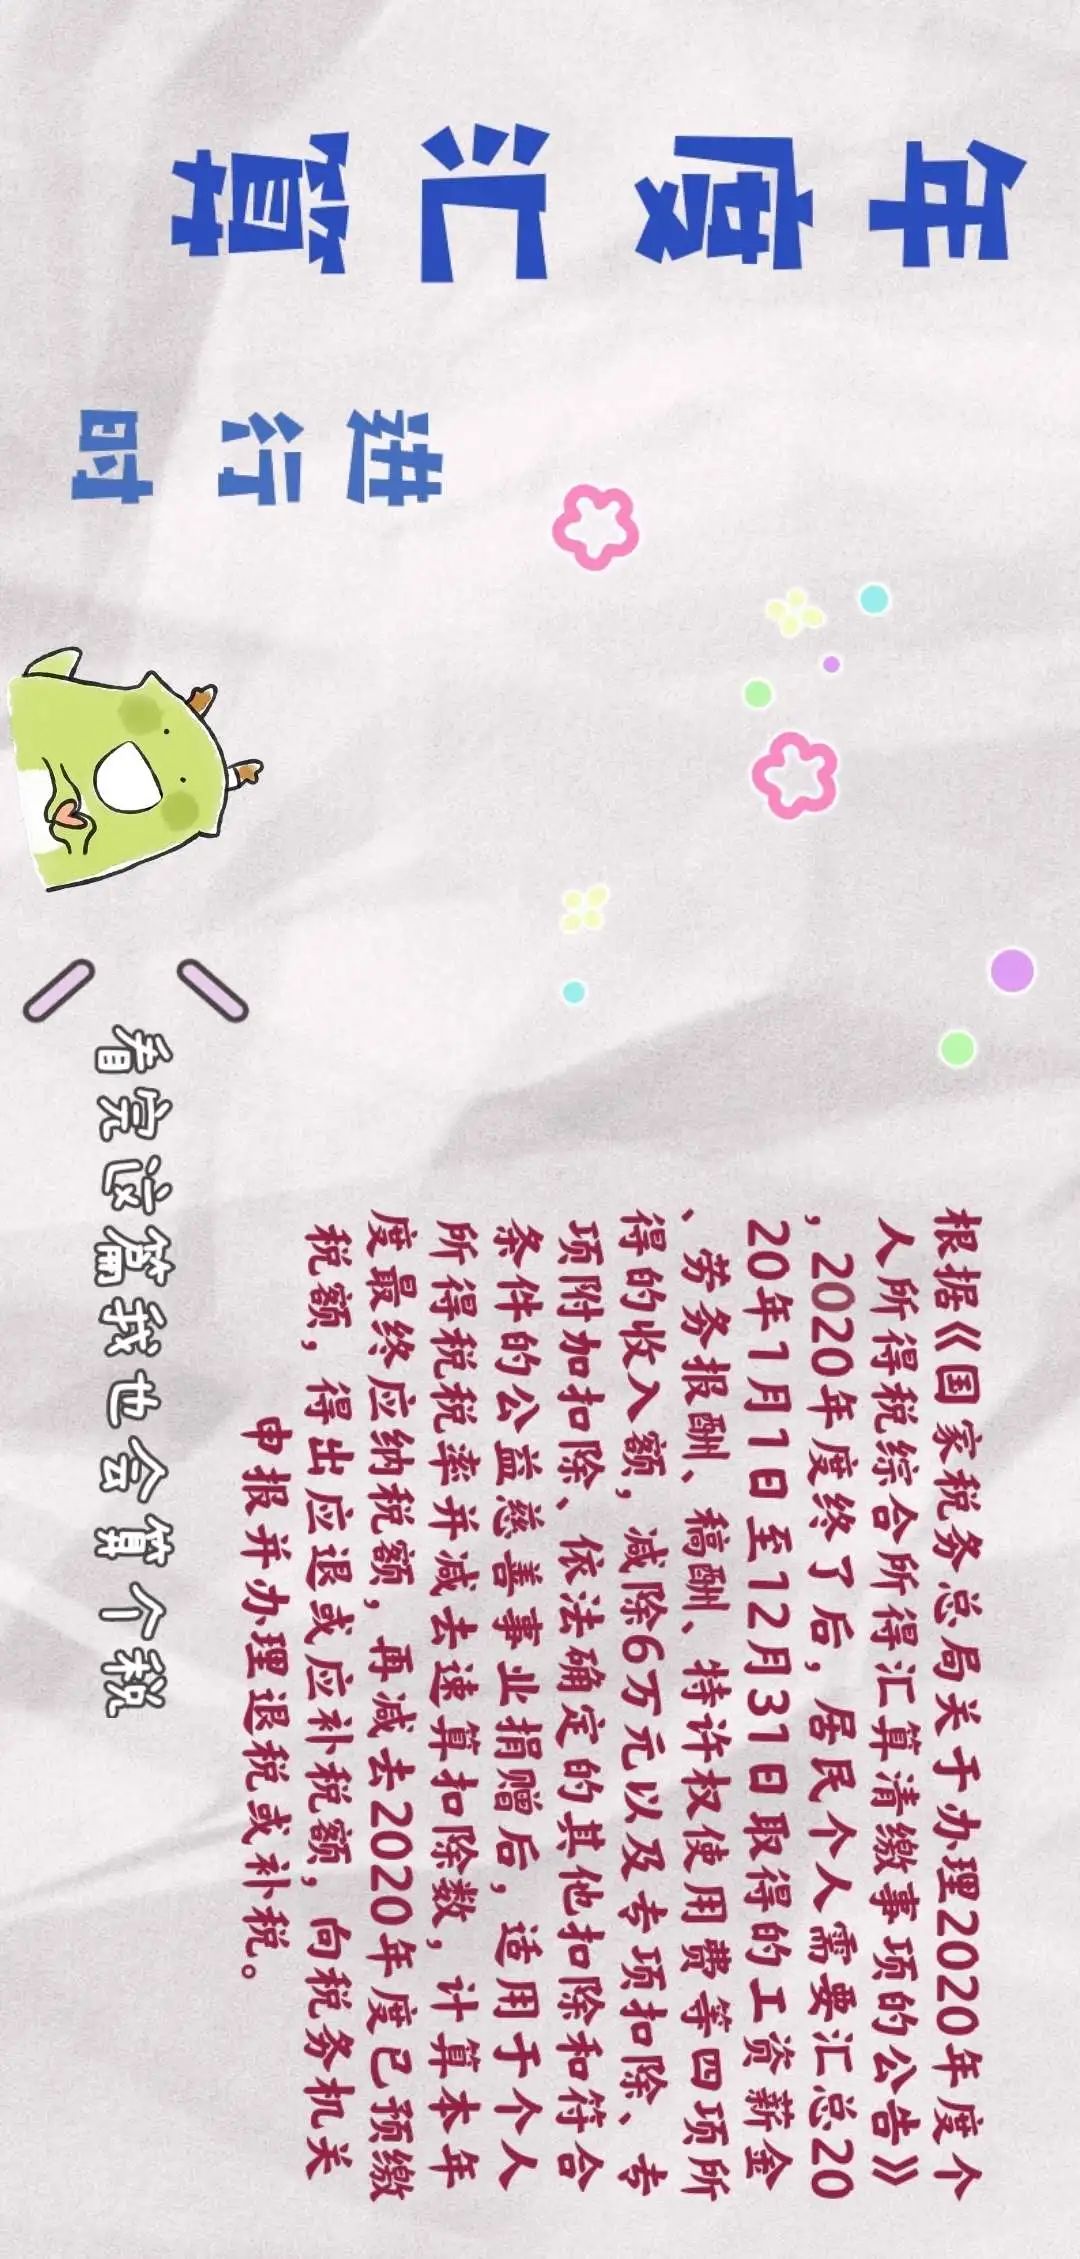 年度汇算
进行时
根据《国家税务总局关于办理2020年度个
人所得税综合所得汇算清缴事项的公告》
，2020年度终了后，居民个人需要汇总20
20年1月1日至12月31日取得的工资薪金
、劳务报酬、稿酬、特许权使用费等四项所
得的收入额，减除6万元以及专项扣除、专
项附加扣除、依法确定的其他扣除和符合
条件的公益慈善事业捐赠后，适用于个人
所得税税率并减去速算扣除数，计算本年
度最终应纳税额，再减去2020年度已预缴
税额，得出应退或应补税额，向税务机关
申报并办理退税或补税。
看完这篇我也会算个税